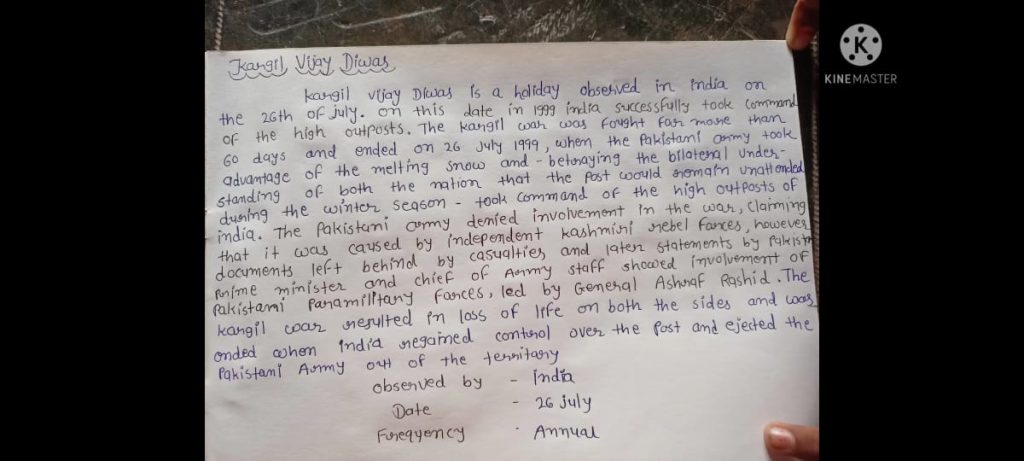 Kargil Vijay Diwas
Kargil Vijay Diwas is a holiday observed in india on
the 26th of july. on this date in 1999 india successfully took command
of the high outposts. The kargil war was fought for more than
60 days and ended on 26 July 1999, when the Pakistani army took
advantage of the melting snow and - betraying the bilateral under-
standing of both the nation that the post would remain unattended
during the winter season - took command of the high outposts of
india. The Pakistani army denied involvement in the war, claiming
that it was caused by independent kashmiri rebel forces, however
documents left behind by casualties and later statements by Pakist
prime minister and chief of Army staff showed involvement of
Pakistani Paramilitary forces, led by General Ashraf Rashid. The
kargil war resulted in loss of life on both the sides and was
ended when india regained control over the post and ejected the
Pakistani Army out of the territary
observed by - india
Date - 26 july
Fureqyency - Annual
KINEMASTER